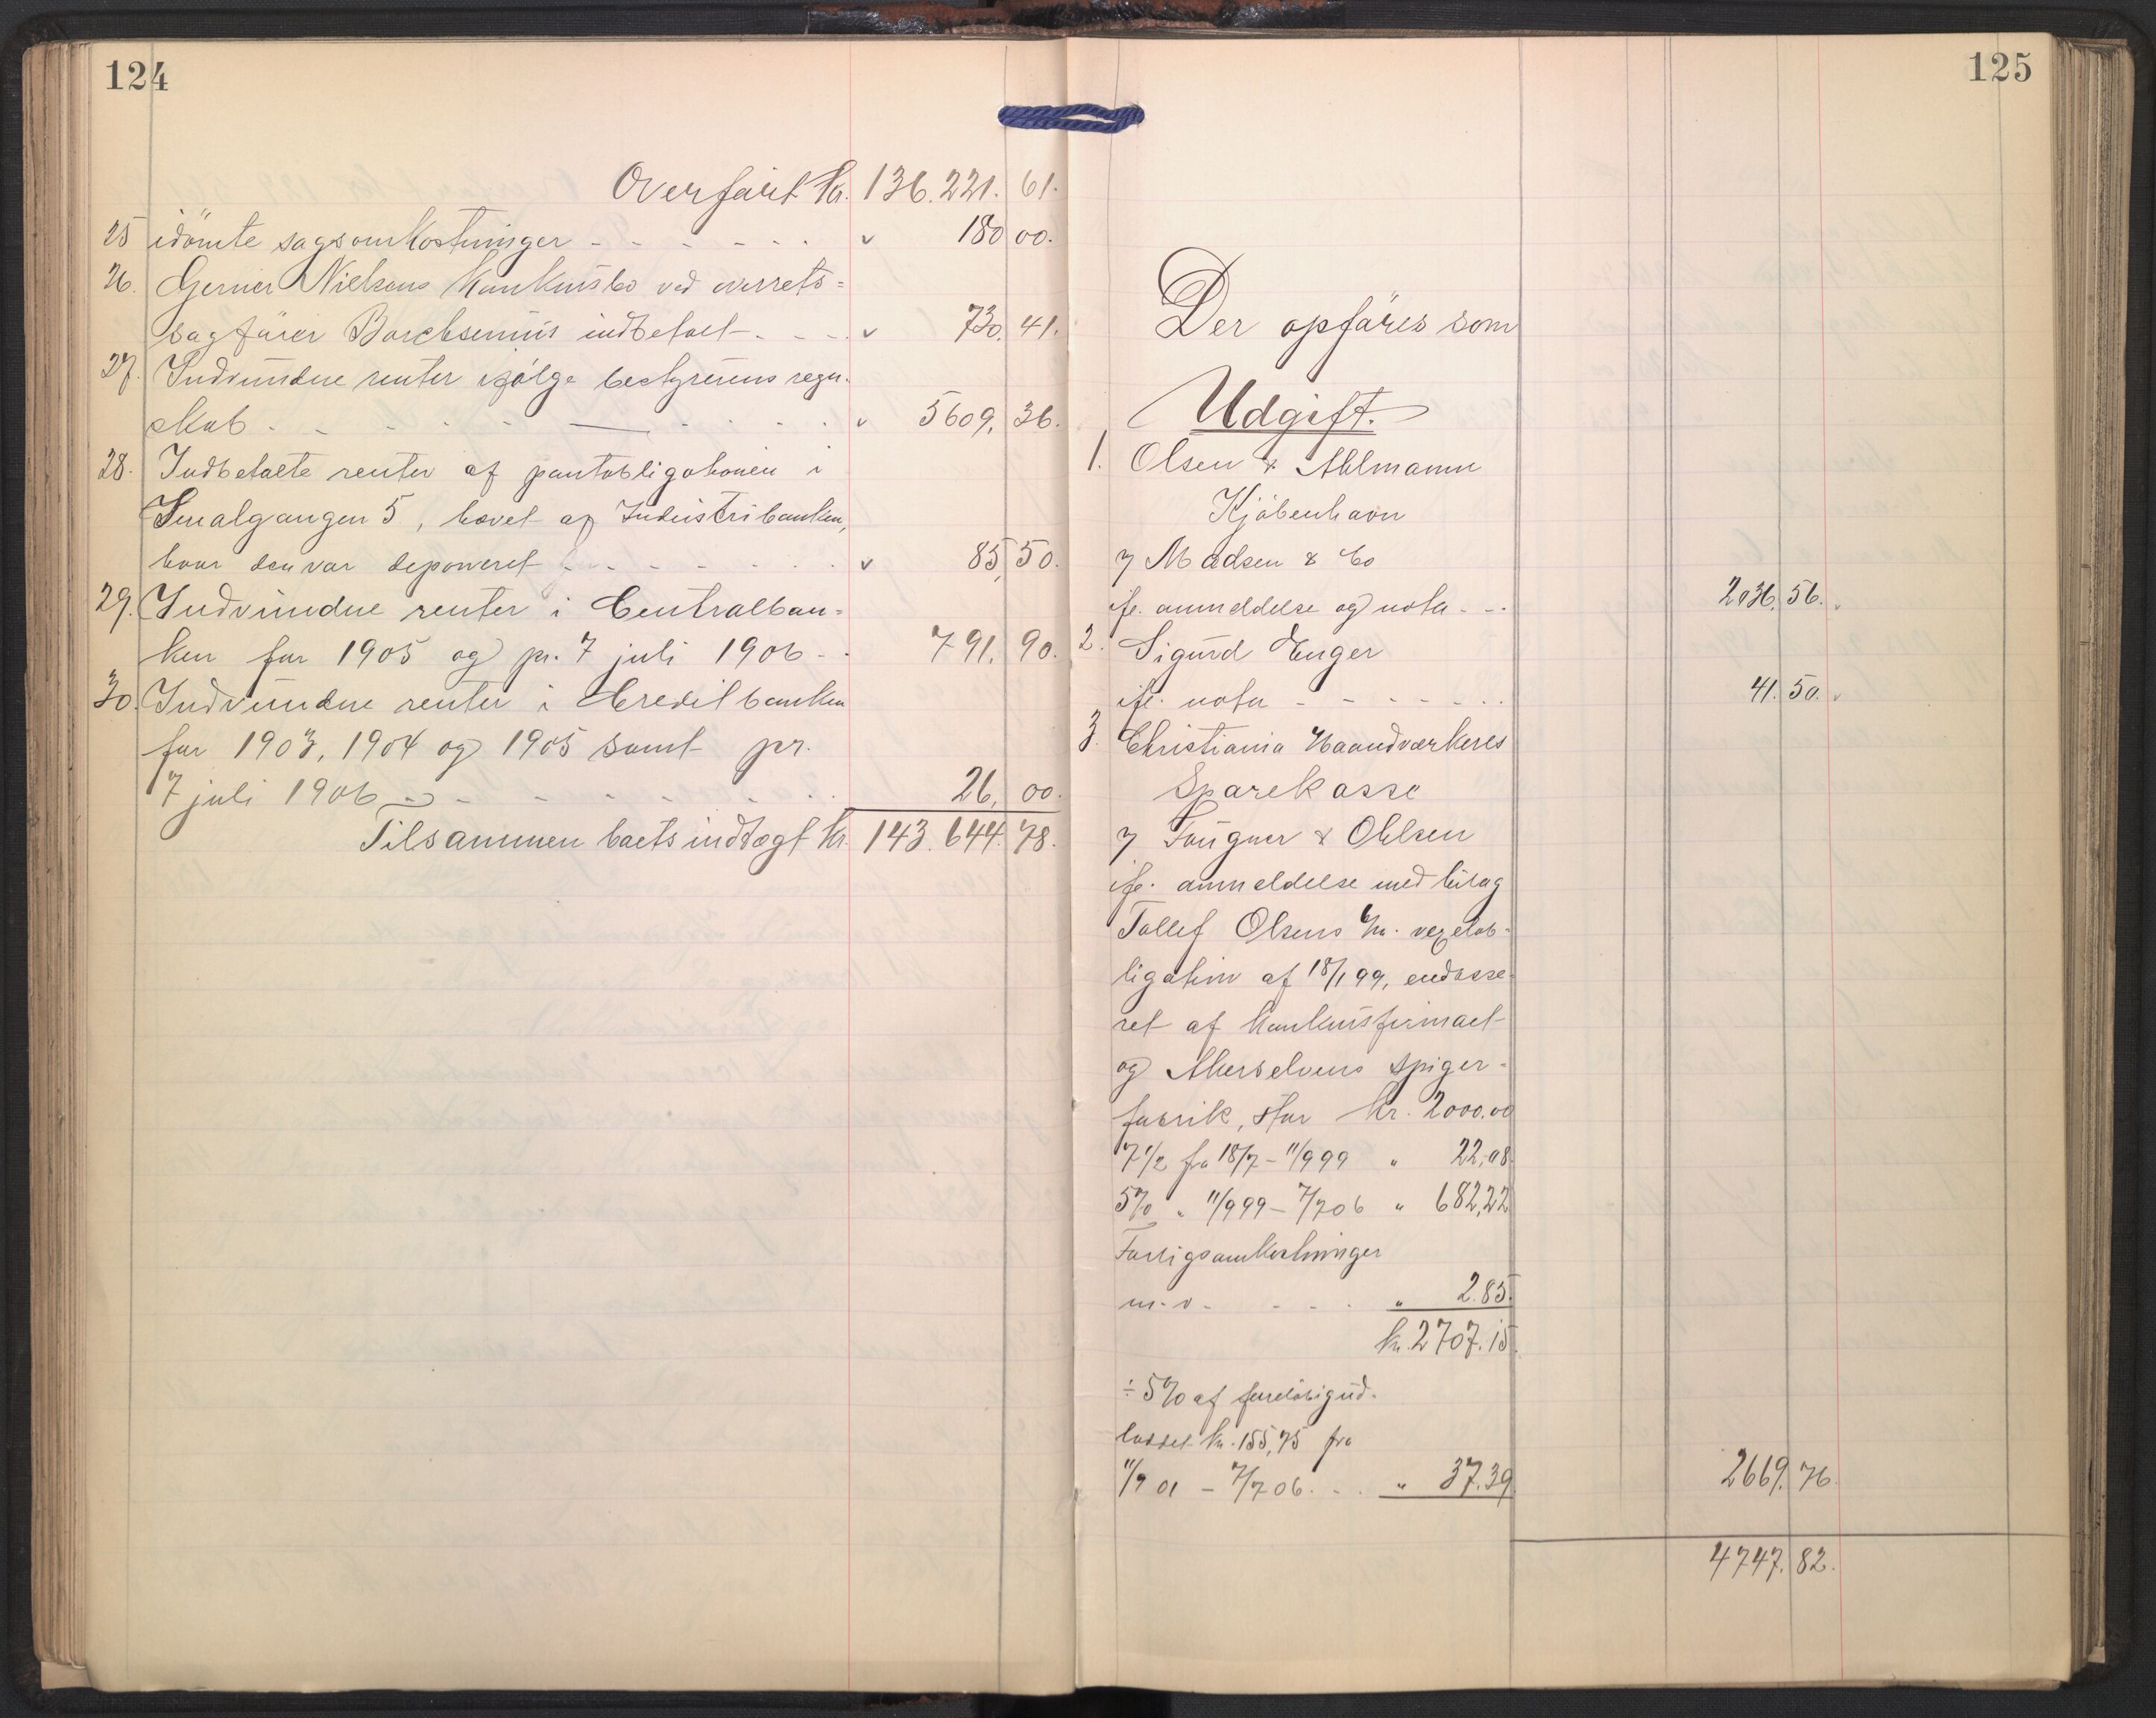 124
Overført kr. 136.221. 61.
25 idømte sagsomkostninger - - - - - - " 180 00.
26. Gerner Nielsens konkursbo ved overrets=
sagfører Borchsenius indbetalt - - - " 730. 41.
27. Indvundne renter ifølge bestyrerens regn-
skab - - - - - - - - - - " 5609. 36.
28. Indbetalte renter af pantobligationen i
Smalgangen 5, hævet af Industribanken,
hvor den var deponeret - - - - - - " 85,50.
29. Indvundne renter i Centralban=
ken for 1905 og pr. 7 juli 1906 - - 791. 90.
30. Indvundne renter i Creditbanken
for 1903, 1904 og 1905 samt pr.
7 juli 1906 - - - - - - - 26, 00.
Tilsammen boets indtægt kr. 143.644.78.
125
Der opføres som
Udgift.
1. Olsen & Ahlmann
Kjøbenhavn
7 Madsen & Co
ifl. anmeldelse og nota - - . 2036. 56.
2. Sigurd Enger
ifl. nota - - - - - - . 41. 50.
3. Christiania Haandværkeres
Sparekasse
7 Fougner & Ohlsen
ifl. anmeldelse med bilag
Tollef Olsens 6/m. vexelob-
ligation af 18/1 99, endosse-
ret af konkursfirmaet
og Akerselvens spiger-
fabrik, stor kr. 2000.00
7 1/2 fra 18/7 - 11/9 99 " 22,08.
5% " 11/9 99 - 7/7 06 " 682,22
Forligsomkostninger
m. v. - - - . " 2.85.
kr. 2707.15.
÷ 5% af foreløbig ud-
loddet kr. 155,75 fra
11/9 01 - 7/7 06. - . " 37.39 2669. 76.
4747. 82.